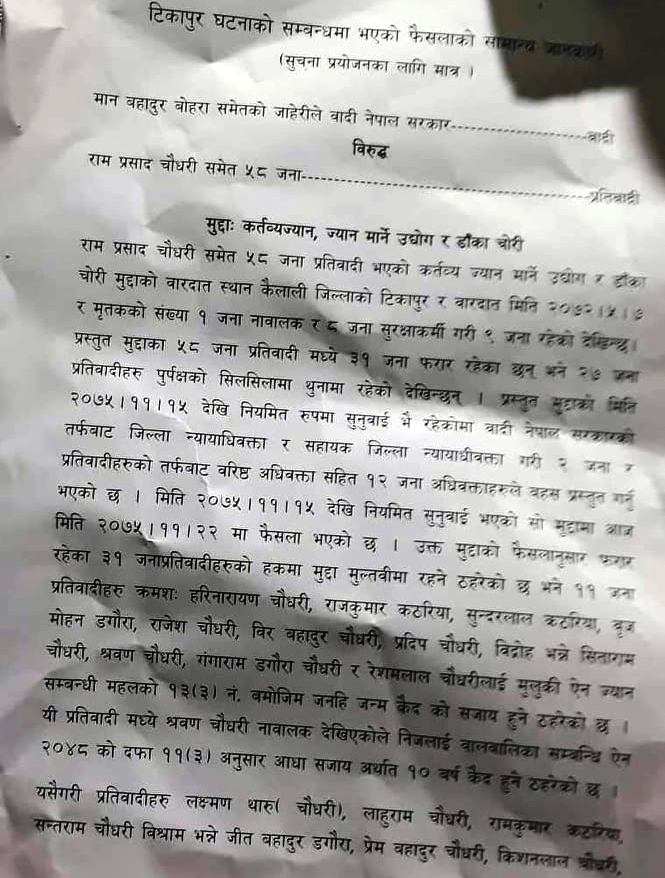 टिकापुर घटनाको सम्बन्धमा भएको फैसलाको सामान्य जानकारी
(सुचना प्रयोजनका लागि मात्र ।
मान बहादुर वोहरा समेतको जाहेरीले वादी नेपाल सरकार------------------वादी
विरुद्ध
राम प्रसाद चौधरी समेत ५८ जना------------------------------------प्रतिवादी
मुद्दाः कर्तव्यज्यान, ज्यान मार्ने उद्योग र डाँका चोरी
राम प्रसाद चौधरी समेत ५८ जना प्रतिवादी भएको कर्तव्य ज्यान मार्ने उद्योग र डाँका
चोरी मुद्दाको वारदात स्थान कैलाली जिल्लाको टिकापुर र वारदात मिति २०७२।५।७
र मृतकको संख्या १ जना नावालक र ८ जना सुरक्षाकर्मी गरी ९ जना रहेको देखिन्छ।
प्रस्तुत मुद्दाका ५८ जना प्रतिवादी मध्ये ३१ जना फरार रहेका छन् भने २७ जना
प्रतिवादीहरु पुर्पक्षको सिलसिलामा थुनामा रहेको देखिन्छन् । प्रस्तुत मुद्दाको मिति
२०७५।११।१५ देखि नियमित रुपमा सुनुवाई भै रहेकोमा वादी नेपाल सरकारको
तर्फबाट जिल्ला न्यायाधिवक्ता र सहायक जिल्ला न्यायाधीवक्ता गरी २ जना र
प्रतिवादीहरुको तर्फबाट वरिष्ठ अधिवक्ता सहित १२ जना अधिवक्ताहरुले वहस प्रस्तुत गर्नु
भएको छ । मिति २०७५।११।१५ देखि नियमित सुनुवाई भएको सो मुद्दामा आज
मिति २०७५।११।२२ मा फैसला भएको छ । उक्त मुद्दाको फैसलानुसार फरार
रहेका ३१ जनाप्रतिवादीहरुको हकमा मुद्दा मुल्तवीमा रहने ठहरेको छ भने ११ जना
प्रतिवादीहरु क्रमशः हरिनारायण चौधरी, राजकुमार कठरिया, सुन्दरलाल कठरिया, वृज
मोहन डगौरा, राजेश चौधरी, विर बहादुर चौधरी, प्रदिप चौधरी, विद्रोह भन्ने सिताराम
चौधरी, श्रवण चौधरी, गंगाराम डगौरा चौधरी र रेशमलाल चौधरीलाई मुलुकी ऐन ज्यान
सम्बन्धी महलको १३(३) नं. वमोजिम जनहि जन्म कैद को सजाय हुने ठहरेको छ ।
यी प्रतिवादी मध्ये श्रवण चौधरी नावालक देखिएकोले निजलाई वालवालिका सम्बन्धि ऐन
२०४८ को दफा ११(३) अनुसार आधा सजाय अर्थात १० बर्ष कैद हुने ठहरेको छ ।
यसैगरी प्रतिवादीहरु लक्ष्मण थारु( चौधरी), लाहुराम चौधरी, रामकुमार कठरिया,
सन्तराम चौधरी विश्राम भन्ने जीत बहादुर डगौरा, प्रेम बहादुर चौधरी, किशनलाल चौधरी,